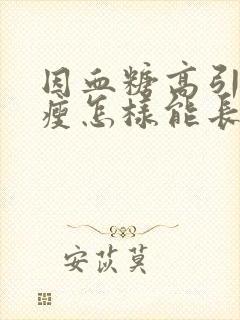 因血糖高引
瘦怎样能长
安苡莫